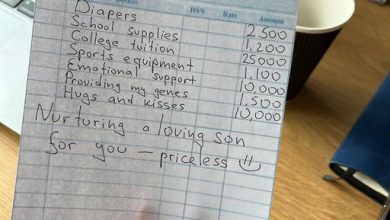 HSN Date Amount
Diapers 2500
School supplies 1,200
College tuition 25000
Sports equipment 1,100
Emotional support 10,000
Providing my genes 1,500
Hugs and kisses 10,000
Nurturing a loving son
for you — priceless